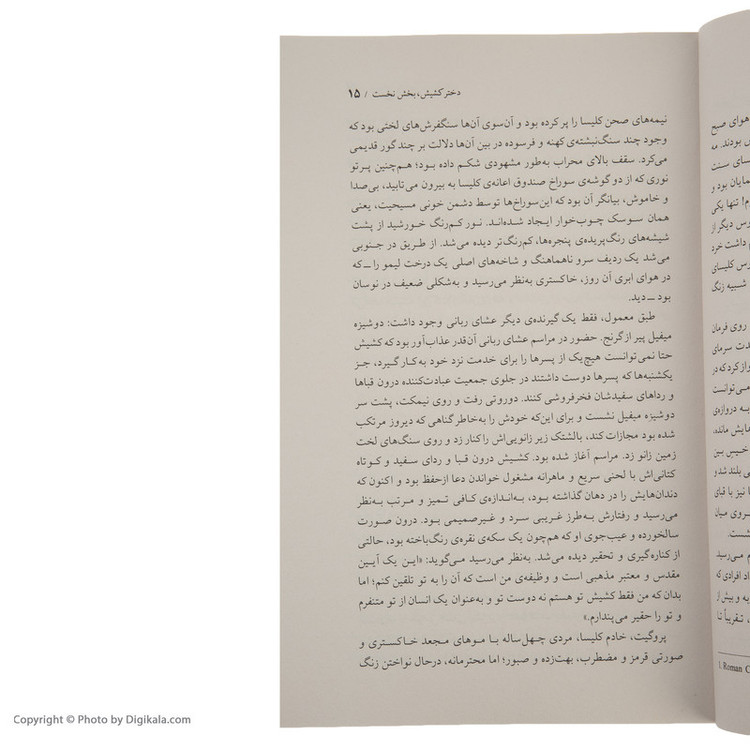 دختر کشیش، بخش نخست / ۱۵
نیمه‌های صحن کلیسا را پر کرده بود و آن‌سوی آن‌ها سنگفرش‌های لختی بود که
وجود چند سنگ‌نبشته‌ی کهنه و فرسوده در بین آن‌ها دلالت بر چند گور قدیمی
می‌کرد. سقف بالای محراب به‌طور مشهودی شکم داده بود؛ هم‌چنین پرتو
نوری که از دو گوشه‌ی سوراخ صندوق اعانه‌ی کلیسا به بیرون می‌تابید، بی‌صدا
و خاموش، بیانگر آن بود که این‌سوراخ‌ها توسط دشمن خونی مسیحیت، یعنی
همان سوسک چوب‌خوار ایجاد شده‌اند. نور کم‌رنگ خورشید از پشت
شیشه‌های رنگ‌پریده‌ی پنجره‌ها، کم‌رنگ‌تر دیده می‌شد. از طریق در جنوبی
می‌شد یک ردیف سرو ناهماهنگ و شاخه‌های اصلی یک درخت لیمو را ــ که
در هوای ابری آن روز، خاکستری به‌نظر می‌رسید و به‌شکلی ضعیف در نوسان
بود ــ دید.
طبق معمول، فقط یک گیرنده‌ی دیگر عشای ربانی وجود داشت: دوشیزه
میفیل پیر از گرنج. حضور در مراسم عشای ربانی آن‌قدر عذاب‌آور بود که کشیش
حتا نمی‌توانست هیچ‌یک از پسرها را برای خدمت نزد خود به‌کار گیرد، جـز
یکشنبه‌ها که پسرها دوست داشتند در جلوی جمعیت عبادت‌کننده درون قباها
و رداهای سفیدشان فخرفروشی کنند. دوروتی رفت و روی نیمکت، پشت سر
دوشیزه میفیل نشست و برای این‌که خودش را به‌خاطر گناهی که دیروز مرتکب
شده بود مجازات کند، بالشتک زیر زانویی‌اش را کنار زد و روی سنگ‌های لخت
زمین زانو زد. مراسم آغاز شده بود. کشیش درون قبا و ردای سفید و کوتاه
کتانی‌اش با لحنی سریع و ماهرانه مشغول خواندن دعا از حفظ بود و اکنون که
دندان‌هایش را در دهان گذاشته بود، به‌اندازه‌ی کافی تمیز و مرتب به‌نظر
می‌رسید و رفتارش به‌طرز غریبی سرد و غیرصمیمی بود. درون صورت
سالخورده و عیب‌جوی او که هم‌چون یک سکه‌ی نقره‌ی رنگ‌باخته بود، حالتی
از کناره‌گیری و تحقیر دیده می‌شد. به‌نظر می‌رسید می‌گوید: «این یک آیین
مقدس و معتبر مذهبی است و وظیفه‌ی من است که آن را به تو تلقین کنم؛ اما
بدان که من فقط کشیش تو هستم نه دوست تو و به‌عنوان یک انسان از تو متنفرم
و تو را حقیر می‌پندارم.»
پروگیت، خادم کلیسا، مردی چهل‌ساله با موهای مجعد خاکستری و
صورتی قرمز و مضطرب، بهت‌زده و صبور؛ اما محترمانه، درحال نواختن زنگ
هوای صبح
بودند.
سای سنت
نمایان بود و
تنها یکی
دیگر از
داشت خرد
کلیسای
شبیه زنگ
روی فرمان
سرمای
کرد که در
می‌توانست
به دروازه‌ی
مانده.
خیس بین
بلند شد و
نیز با قبای
میان
می‌رسید
افرادی که
و بیش از
تقریباً تا
1. Roman C
Copyright © Photo by Digikala.com